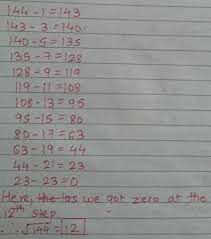 144 - 1 = 143
143 - 3 = 140
140 - 5 = 135
135 - 7 = 128
128 - 9 = 119
119 - 11 = 108
108 - 13 = 95
95 - 15 = 80
80 - 17 = 63
63 - 19 = 44
44 - 21 = 23
23 - 23 = 0
Here, the as we got zero at the
12th step
∴ √144 = 12